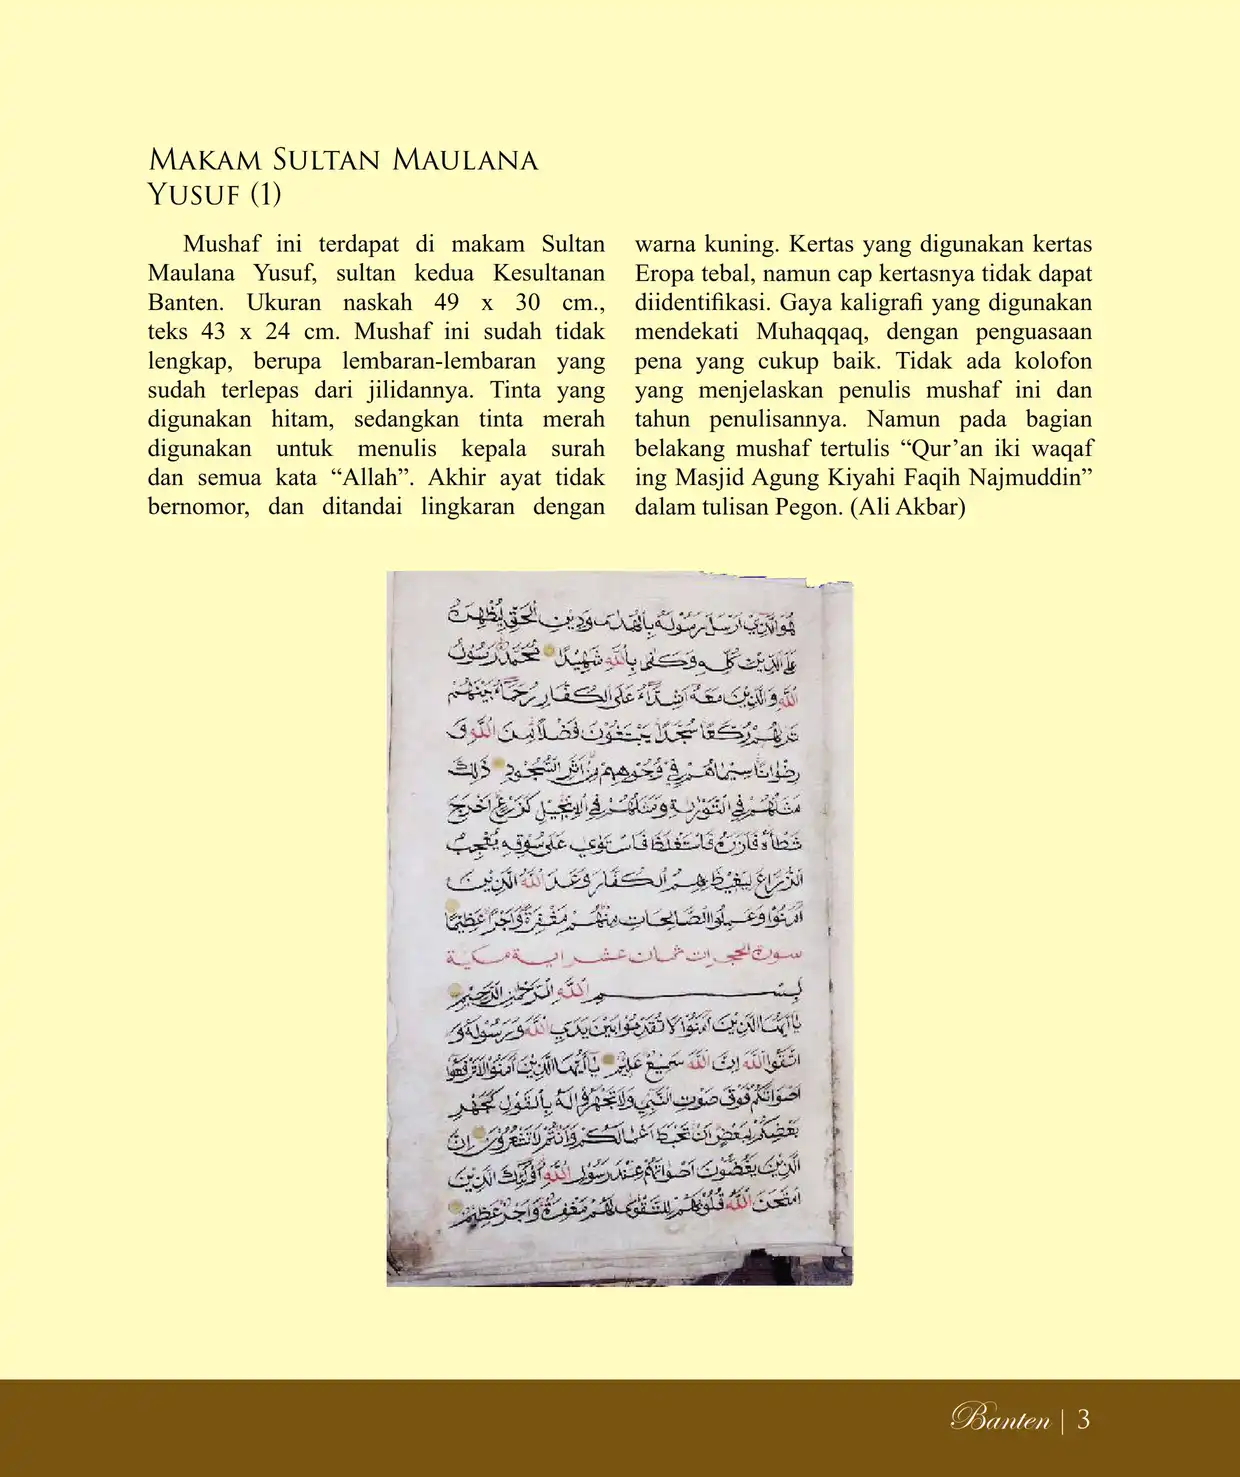 Makam Sultan Maulana
Yusuf (1)
Mushaf ini terdapat di makam Sultan
Maulana Yusuf, sultan kedua Kesultanan
Banten. Ukuran naskah 49 x 30 cm.,
teks 43 x 24 cm. Mushaf ini sudah tidak
lengkap, berupa lembaran-lembaran yang
sudah terlepas dari jilidannya. Tinta yang
digunakan hitam, sedangkan tinta merah
digunakan untuk menulis kepala surah
dan semua kata “Allah”. Akhir ayat tidak
bernomor, dan ditandai lingkaran dengan
warna kuning. Kertas yang digunakan kertas
Eropa tebal, namun cap kertasnya tidak dapat
diidentifikasi. Gaya kaligrafi yang digunakan
mendekati Muhaqqaq, dengan penguasaan
pena yang cukup baik. Tidak ada kolofon
yang menjelaskan penulis mushaf ini dan
tahun penulisannya. Namun pada bagian
belakang mushaf tertulis “Qur’an iki waqaf
ing Masjid Agung Kiyahi Faqih Najmuddin”
dalam tulisan Pegon. (Ali Akbar)
هُوَ الَّذِي اَرْسَلَ رَسُولَهُ بِالْهُدَى وَدِينِ الْحَقِّ لِيُظْهِرَهُ
عَلَى الدِّيْنِ كُلِّهِ وَكَفَى بِاللَّهِ شَهِيْدًا مُحَمَّدٌ رَسُوْلُ
اللَّهِ وَالَّذِيْنَ مَعَهُ اَشِدَّاءُ عَلَى الْكُفَّارِ رُحَمَاءُ بَيْنَهُمْ
تَرَىهُمْ رُكَّعًا سُجَّدًا يَبْتَغُوْنَ فَضْلًا مِنَ اللَّهِ وَ
رِضْوَانًا سِيْمَاهُمْ فِيْ وُجُوْهِهِمْ مِنْ اَثَرِ السُّجُوْدِ ذَلِكَ
مَثَلُهُمْ فِي التَّوْرٰىةِ وَمَثَلُهُمْ فِي الْاِنْجِيْلِ كَزَرْعٍ اَخْرَجَ
شَطْأَهُ فَآزَرَهُ فَاسْتَغْلَظَ فَاسْتَوَى عَلَى سُوْقِهِ يُعْجِبُ
الزُّرَّاعَ لِيَغِيْظَ بِهِمُ الْكُفَّارَ وَعَدَ اللَّهُ الَّذِيْنَ
اٰمَنُوْا وَعَمِلُوا الصَّالِحَاتِ مِنْهُمْ مَغْفِرَةً وَاَجْرًا عَظِيْمًا
سورة الحجرات ثمان عشر اية مكية
بِسْمِ اللَّهِ الرَّحْمٰنِ الرَّحِيْمِ
يَا اَيُّهَا الَّذِيْنَ اٰمَنُوْا لَا تُقَدِّمُوْا بَيْنَ يَدَيِ اللَّهِ وَرَسُوْلِهِ وَ
اتَّقُوا اللَّهَ اِنَّ اللَّهَ سَمِيْعٌ عَلِيْمٌ يَا اَيُّهَا الَّذِيْنَ اٰمَنُوْا لَا تَرْفَعُوْا
اَصْوَاتَكُمْ فَوْقَ صَوْتِ النَّبِيِّ وَلَا تَجْهَرُوْا لَهُ بِالْقَوْلِ كَجَهْرِ
بَعْضِكُمْ لِبَعْضٍ اَنْ تَحْبَطَ اَعْمَالُكُمْ وَاَنْتُمْ لَا تَشْعُرُوْنَ اِنَّ
الَّذِيْنَ يَغُضُّوْنَ اَصْوَاتَهُمْ عِنْدَ رَسُوْلِ اللَّهِ اُولٰئِكَ الَّذِيْنَ
امْتَحَنَ اللَّهُ قُلُوْبَهُمْ لِلتَّقْوٰى لَهُمْ مَغْفِرَةٌ وَاَجْرٌ عَظِيْمٌ
Banten | 3